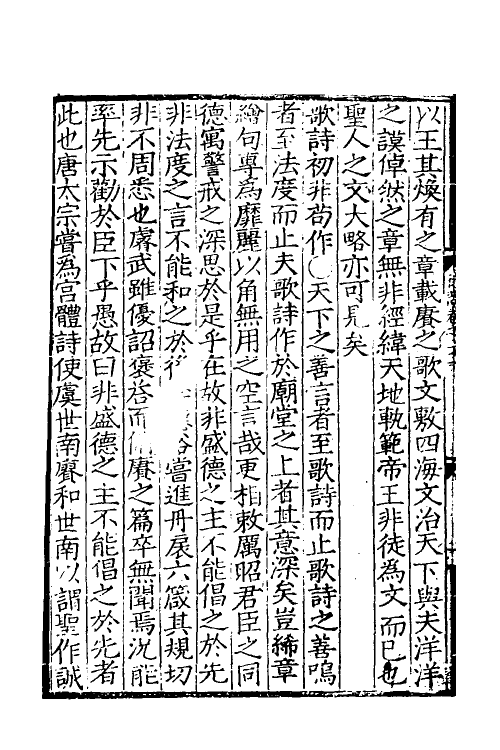 以王其煥有之章載賡之歌文敷四海文治天下與夫洋洋
之謨倬然之章無非經緯天地軌範帝王非徒為文而已也
聖人之文大略亦可見矣
歌詩初非苟作○天下之善言者至歌詩而止歌詩之善鳴
者至法度而止夫歌詩作於廟堂之上者其意深矣豈絺章
繪句導為靡麗以角無用之空言哉更相敕厲昭君臣之同
德寓警戒之深思於是乎在故非盛德之主不能倡之於先
非法度之言不能和之於後裕嘗進丹扆六箴其規切
非不周悉也睿武雖優詔褒答而賡之篇卒無聞焉况能
率先示勸於臣下乎愚故曰非盛德之主不能倡之於先者
此也唐太宗嘗為宫體詩使虞世南賡和世南以謂聖作誠